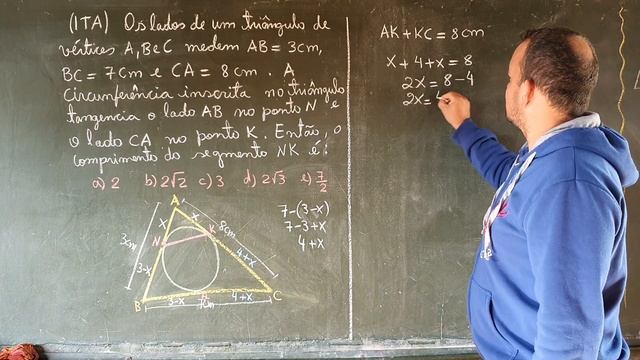 (ITA) Os lados de um triângulo de
vértices A, B e C medem AB = 3cm,
BC = 7cm e CA = 8cm. A
circunferência inscrita no triângulo
tangencia o lado AB no ponto N e
o lado CA no ponto K. Então, o
comprimento do segmento NK é:
a) 2 b) 2√2 c) 3 d) 2√3 e) 7/2
A
x x
3cm N K 8cm
3-x 4+x
B 3-x 7cm 4+x C
7-(3-x)
7-3+x
4+x
AK+KC = 8cm
x+4+x = 8
2x = 8-4
2x = 4